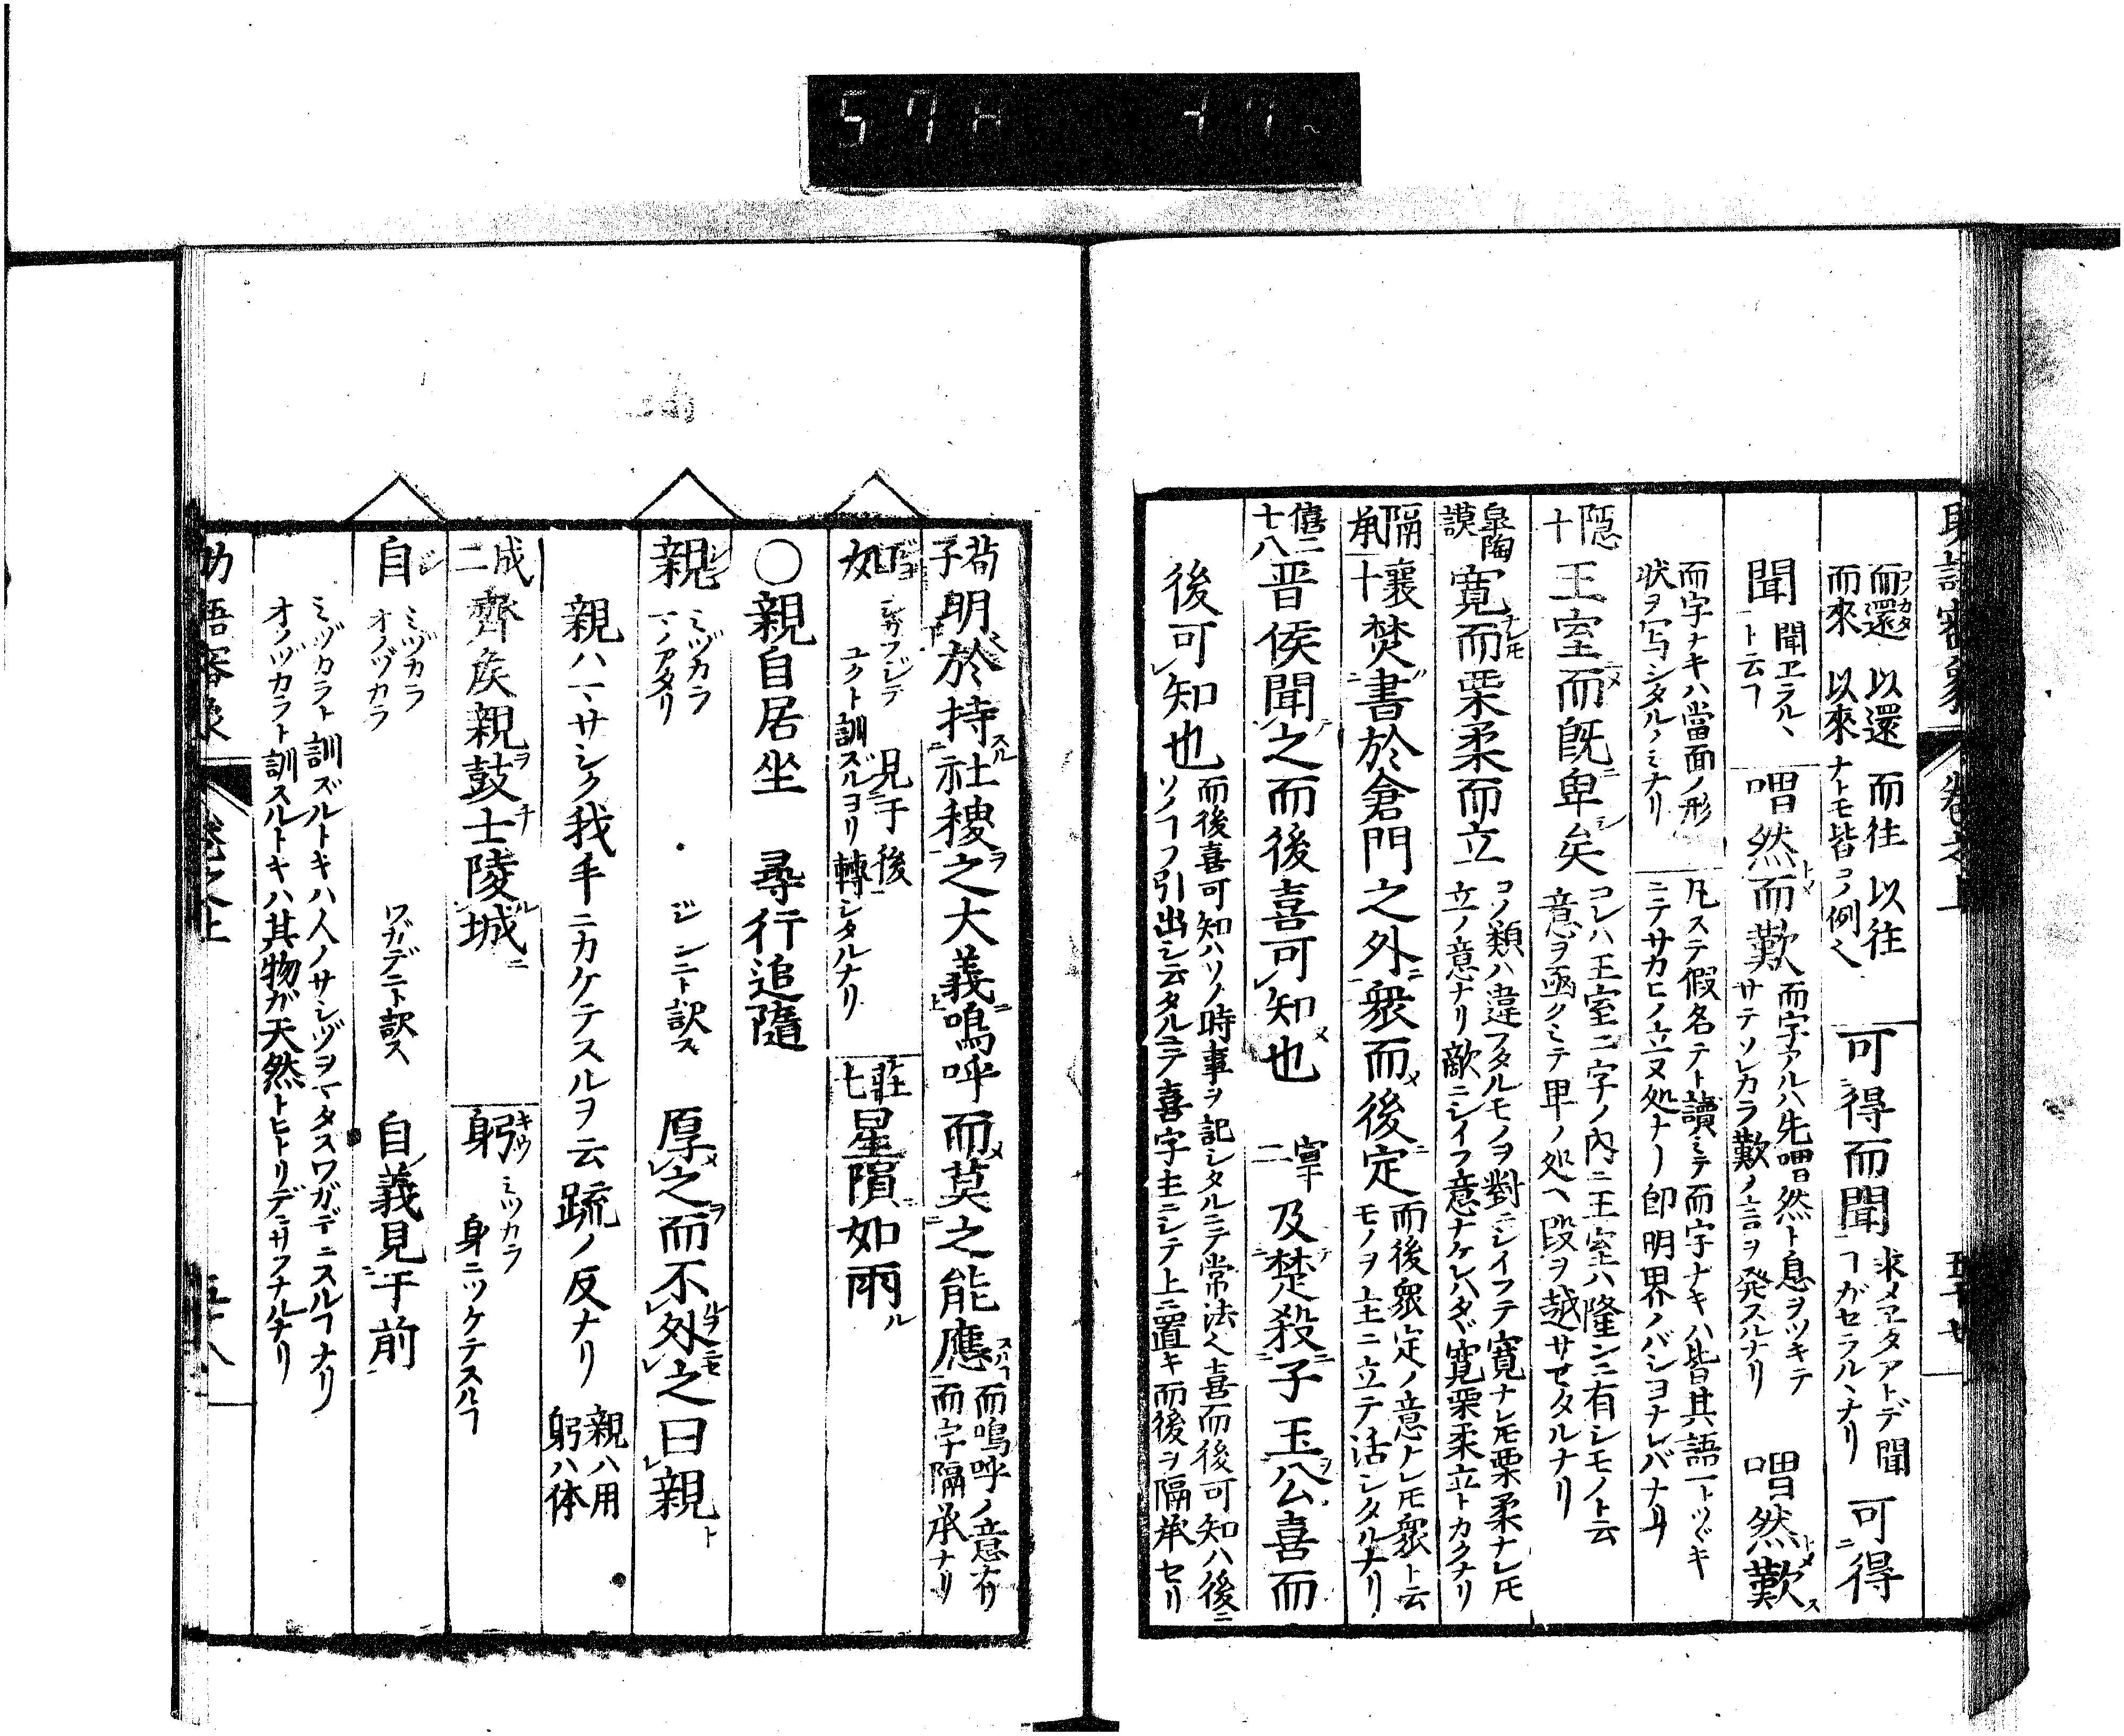 助語審象 卷之上 五十七
而還 以還 而往 以往
而來 以來 ナトモ皆コノ例ヘ
可得而聞 求メヱタアトデ聞
ヿガセラル丶ナリ 可得
聞 聞ヱラル丶
ト云ヿ
喟然而歎 而字アルハ先喟然ト息ヲツキテ
サテソレカラ歎ノ言ヲ発スルナリ 喟然歎
而字ナキハ當面ノ形
状ヲ写シタルノミナリ
凡ステ假名テト讀ミテ而字ナキハ皆其語一トツヾキ
ニテサカヒノ立ヌ処ナリ 卽明界ノバシヨナレバナリ
隱十 王室而既卑矣 コレハ王室二字ノ内ニ王室ハ隆シニ有シモノト云
意ヲ函クミテ卑ノ処ヘ段ヲ越サセタルナリ
皐陶謨 寛而栗柔而立 コノ類ハ違フタルモノヲ對ニシイフテ寛ナレ𪜈栗柔ナレ𪜈
立ノ意ナリ敵ニシイフ意ナケレハタヾ寛栗柔立トカクナリ
隔承 襄十 焚書於倉門之外衆而後定 而後衆定ノ意ナレ𪜈衆ト云
モノヲ主ニ立テ活シタルナリ
僖二十八 晋侯聞之而後喜可知也 宣十二 及楚殺子玉公喜而
後可知也 而後喜可知ハソノ時事ヲ記シタルニテ常法ヘ喜而後可知ハ後ニ
ソノヿヲ引出シ云タルニテ喜字主ニシテ上ニ置キ而後ヲ隔承セリ
荀子 明於持社稷之大義嗚呼而莫之能應 而嗚呼ノ意有リ
而字隔承ナリ
如 見于後
ユクト訓ズルヨリ轉シタルナリ
莊七 星隕如雨
〇親自居坐 尋行追隨
親 ミヅカラ
マノアタリ
ジシンニト訳ス 厚之而不外之曰親
親ハマサシク我手ニカケテスルヲ云疏ノ反ナリ 親ハ用
躬ハ体
成二 齊侯親鼓士陵城 躬 ミツカラ
身ニツケテスルヿ
自 ミヅカラ
オノヅカラ
ワガデニト訳ス 自義見于前
ミヅカラト訓ズルトキハ人ノサシヅヲマタスワガデニスルヿナリ
オノヅカラト訓スルトキハ其物ガ天然トヒトリデニサフナルナリ
助語審象 卷之上 五十八